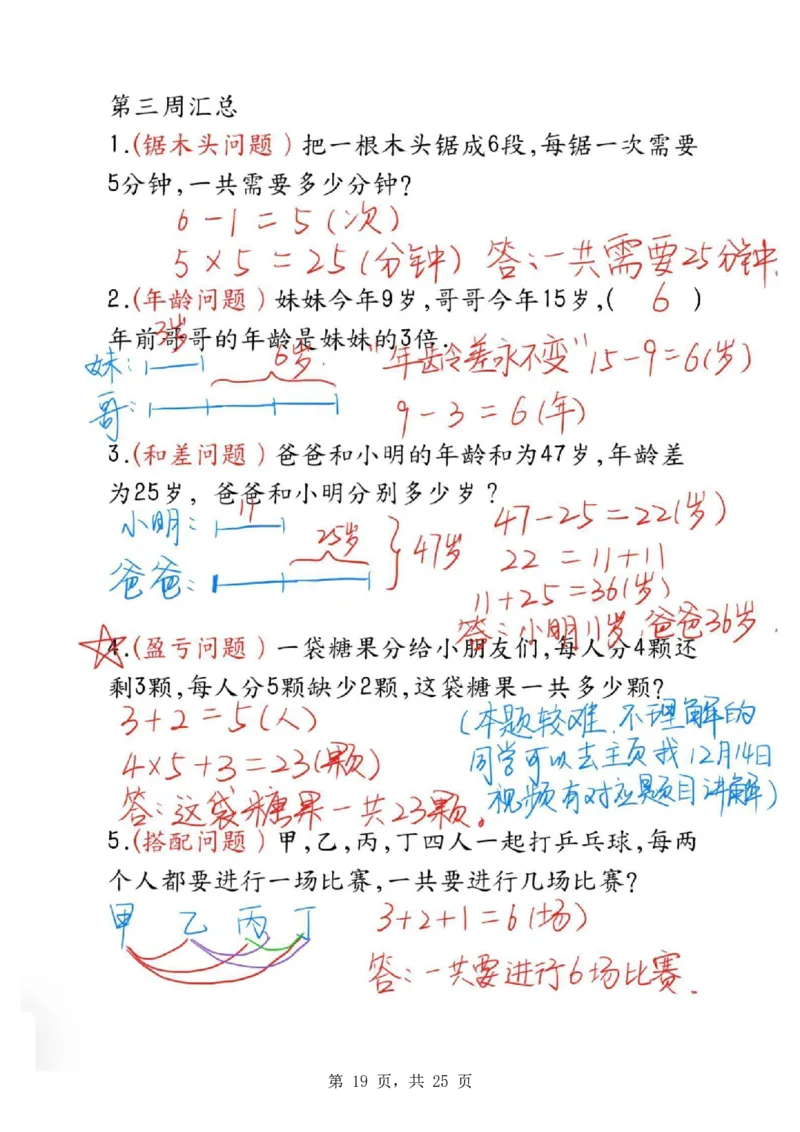 第三周汇总
1.(锯木头问题)把一根木头锯成6段,每锯一次需要
5分钟,一共需要多少分钟?
6-1=5(次)
5×5=25(分钟) 答:一共需要25分钟.
2.(年龄问题)妹妹今年9岁,哥哥今年15岁,( 6 )
年前哥哥的年龄是妹妹的3倍.
3岁
妹: 6岁. "年龄差永不变" 15-9=6(岁)
哥: 9-3=6(年)
3.(和差问题)爸爸和小明的年龄和为47岁,年龄差
为25岁, 爸爸和小明分别多少岁?
小明: 11 47-25=22(岁)
25岁 47岁 22=11+11
爸爸: 11+25=36(岁)
答:小明11岁,爸爸36岁.
4.(盈亏问题)一袋糖果分给小朋友们,每人分4颗还
剩3颗,每人分5颗缺少2颗,这袋糖果一共多少颗?
3+2=5(人) (本题较难,不理解的
4×5+3=23(颗) 同学可以去主页找12月14日
答:这袋糖果一共23颗。 视频有对应题目讲解)
5.(搭配问题)甲,乙,丙,丁四人一起打乒乓球,每两
个人都要进行一场比赛,一共要进行几场比赛?
甲 乙 丙 丁 3+2+1=6(场)
答:一共要进行6场比赛.
第 19 页，共 25 页